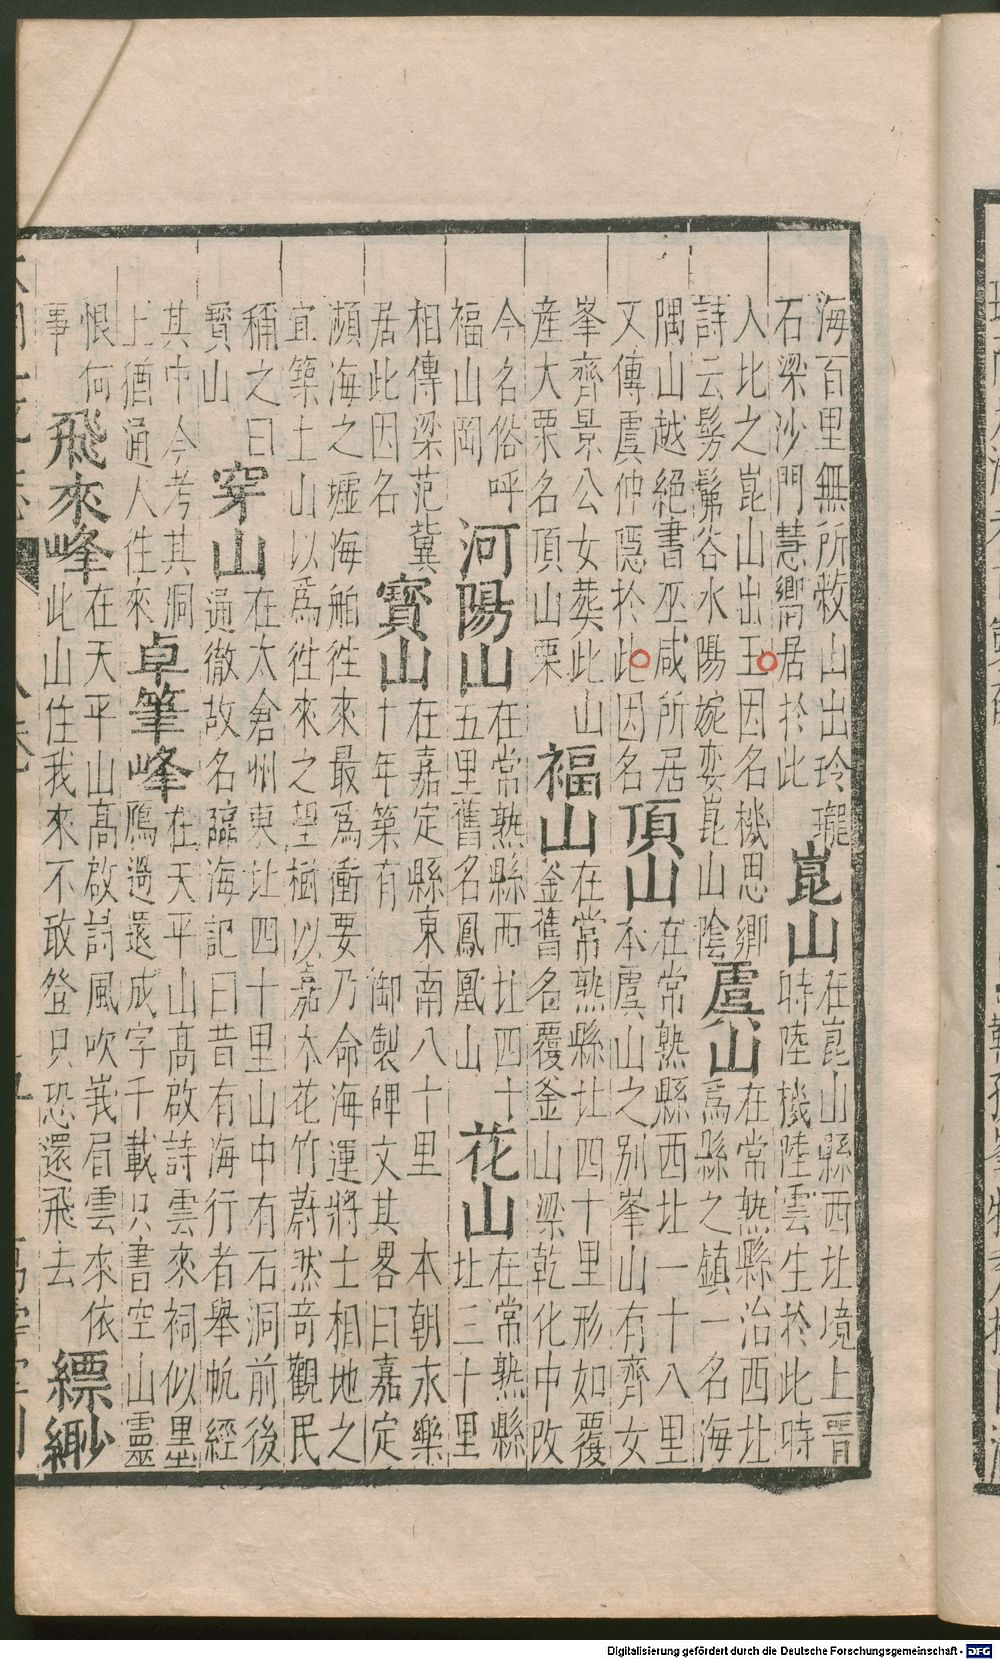 海百里無所救山出玲瓏
石梁沙門慧嚮居於此
崑山
在崑山縣西北境上晉
時陸機陸雲生於此時
人比之崑山出玉因名機思卿
詩云髣髴谷水陽婉孌崑山陰
虞山
在常熟縣治西北
爲縣之鎮一名海
隅山越絕書巫咸所居
又傳虞仲隱於此因名
頂山
在常熟縣西北一十八里
本虞山之別峯山有齊女
峯齊景公女葬此山
産大栗名頂山栗
福山
在常熟縣北四十里形如覆
釜舊名覆釜山梁乾化中改
今名俗呼
福山岡
河陽山
在常熟縣西北四十
五里舊名鳳凰山
花山
在常熟縣
北三十里
相傳梁范冀
居此因名
寳山
在嘉定縣東南八十里 本朝永樂
十年築有 御製碑文其畧曰嘉定
瀕海之墟海舶徃來最爲衝要乃命海運將士相地之
宜築土山以爲徃來之望樹以嘉木花竹蔚然奇觀民
稱之曰
寳山
穿山
在太倉州東北四十里山中有石洞前後
通徹故名臨海記曰昔有海行者舉帆經
其中今考其洞
上猶通人徃來
卓筆峰
在天平山高啟詩雲來祠似墨
鴈過還成字千載只書空山靈
恨何
事
飛來峰
在天平山高啟詩風吹峩眉雲來依
此山住我來不敢登只恐還飛去
縹緲
Digitalisierung gefördert durch die Deutsche Forschungsgemeinschaft - DFG